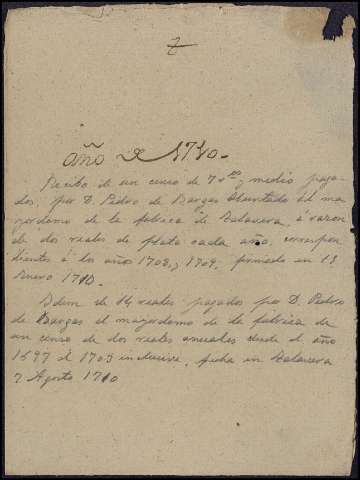 7
año de 1710.
Recibo de un censo de 7 rs. y medio paga-
dos, por D. Pedro de Bargas Hurtado al ma-
yordomo de la fabrica de Talavera, á razon
de dos reales de plata cada año, correspon-
dientes á los años 1708, y 1709. firmado en 18
Enero 1710.
Idem de 14 reales pagados por D. Pedro
de Bargas al mayordomo de la fabrica de
un censo de dos reales anuales desde el año
1697 al 1703 inclusive, fecha en Talavera
7 Agosto 1710